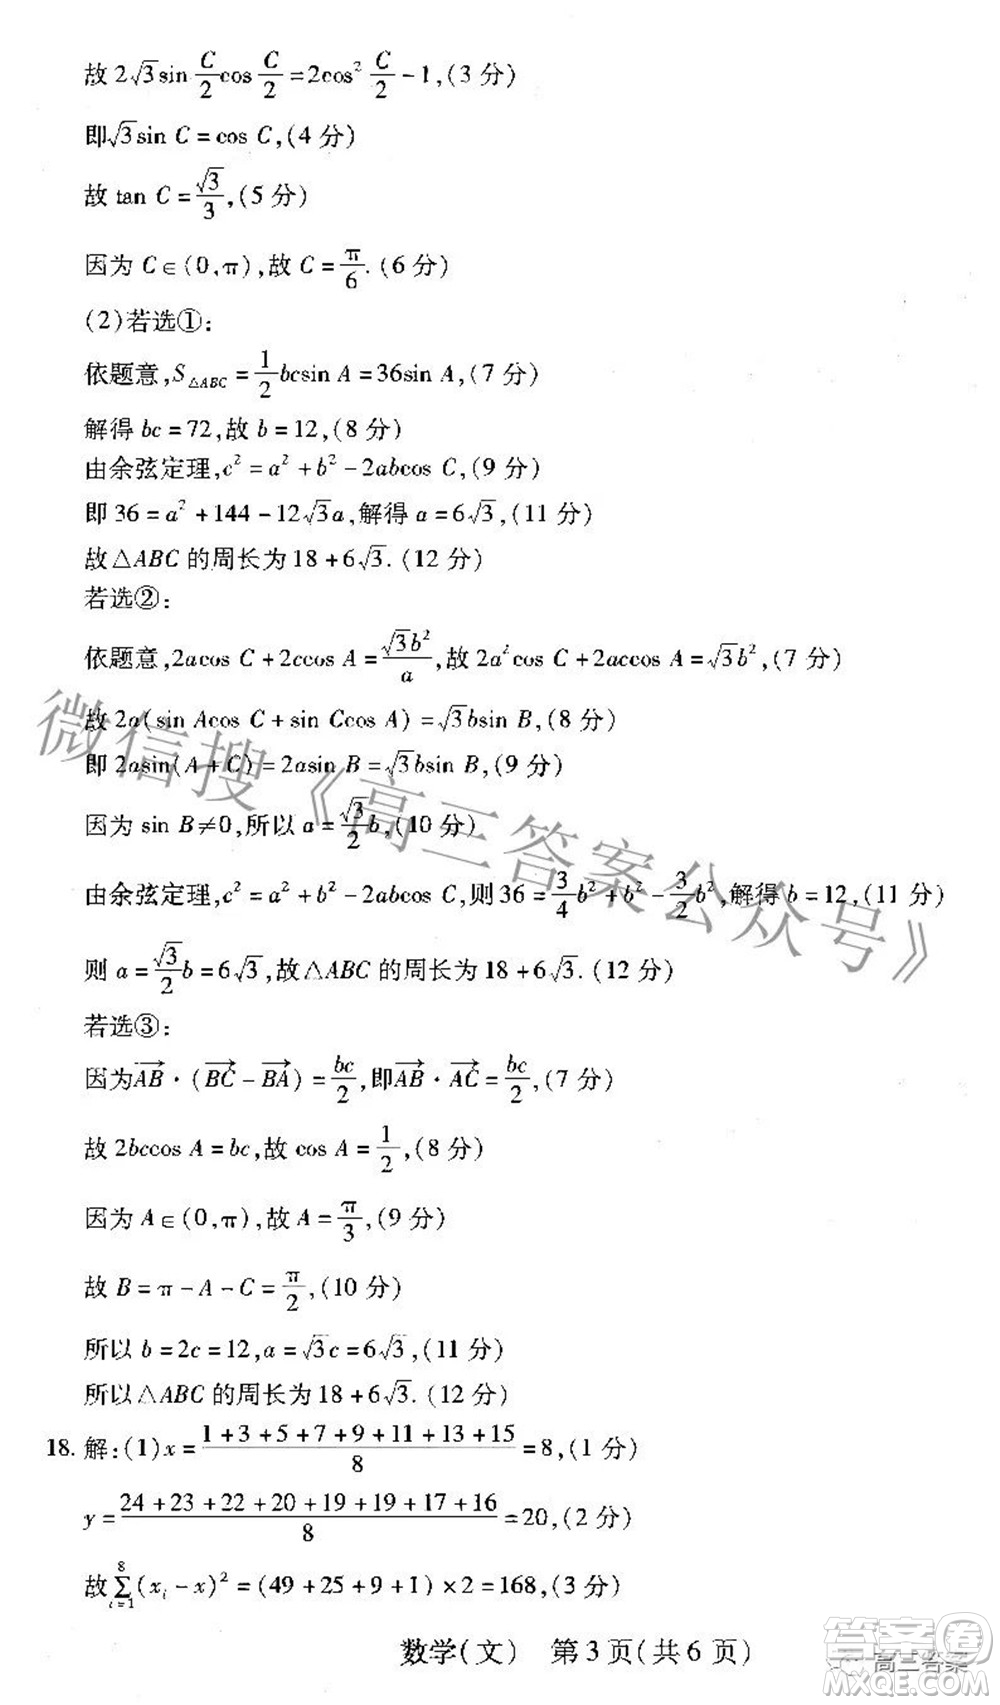 故 2√3sin C/2 cos C/2 = 2cos² C/2 − 1,(3 分)
即√3sin C = cos C,(4 分)
故 tan C = √3/3,(5 分)
因为 C∈(0,π),故 C = π/6.(6 分)
(2)若选①:
依题意,S△ABC = 1/2 bcsin A = 36sin A,(7 分)
解得 bc = 72,故 b = 12,(8 分)
由余弦定理,c² = a² + b² − 2abcos C,(9 分)
即 36 = a² + 144 − 12√3a,解得 a = 6√3,(11 分)
故△ABC 的周长为 18 + 6√3.(12 分)
若选②:
依题意,2acos C + 2ccos A = √3b²/a,故 2a²cos C + 2accos A = √3b²,(7 分)
故 2a(sin Acos C + sin Ccos A) = √3bsin B,(8 分)
即 2asin(A + C) = 2asin B = √3bsin B,(9 分)
因为 sin B≠0,所以 a = √3/2 b,(10 分)
由余弦定理,c² = a² + b² − 2abcos C,则 36 = 3/4 b² + b² − 3/2 b²,解得 b = 12,(11 分)
则 a = √3/2 b = 6√3,故△ABC 的周长为 18 + 6√3.(12 分)
若选③:
因为AB·(BC − BA) = bc/2,即AB·AC = bc/2,(7 分)
故 2bccos A = bc,故 cos A = 1/2,(8 分)
因为 A∈(0,π),故 A = π/3,(9 分)
故 B = π − A − C = π/2,(10 分)
所以 b = 2c = 12,a = √3c = 6√3,(11 分)
所以△ABC 的周长为 18 + 6√3.(12 分)
18. 解:(1)x = (1 + 3 + 5 + 7 + 9 + 11 + 13 + 15)/8 = 8,(1 分)
y = (24 + 23 + 22 + 20 + 19 + 19 + 17 + 16)/8 = 20,(2 分)
故 ∑(i=1→8)(xᵢ − x)² = (49 + 25 + 9 + 1) × 2 = 168,(3 分)
数学(文) 第 3 页(共 6 页)
微信搜《高三答案公众号》
答案圈
高三答案
MXQE.COM